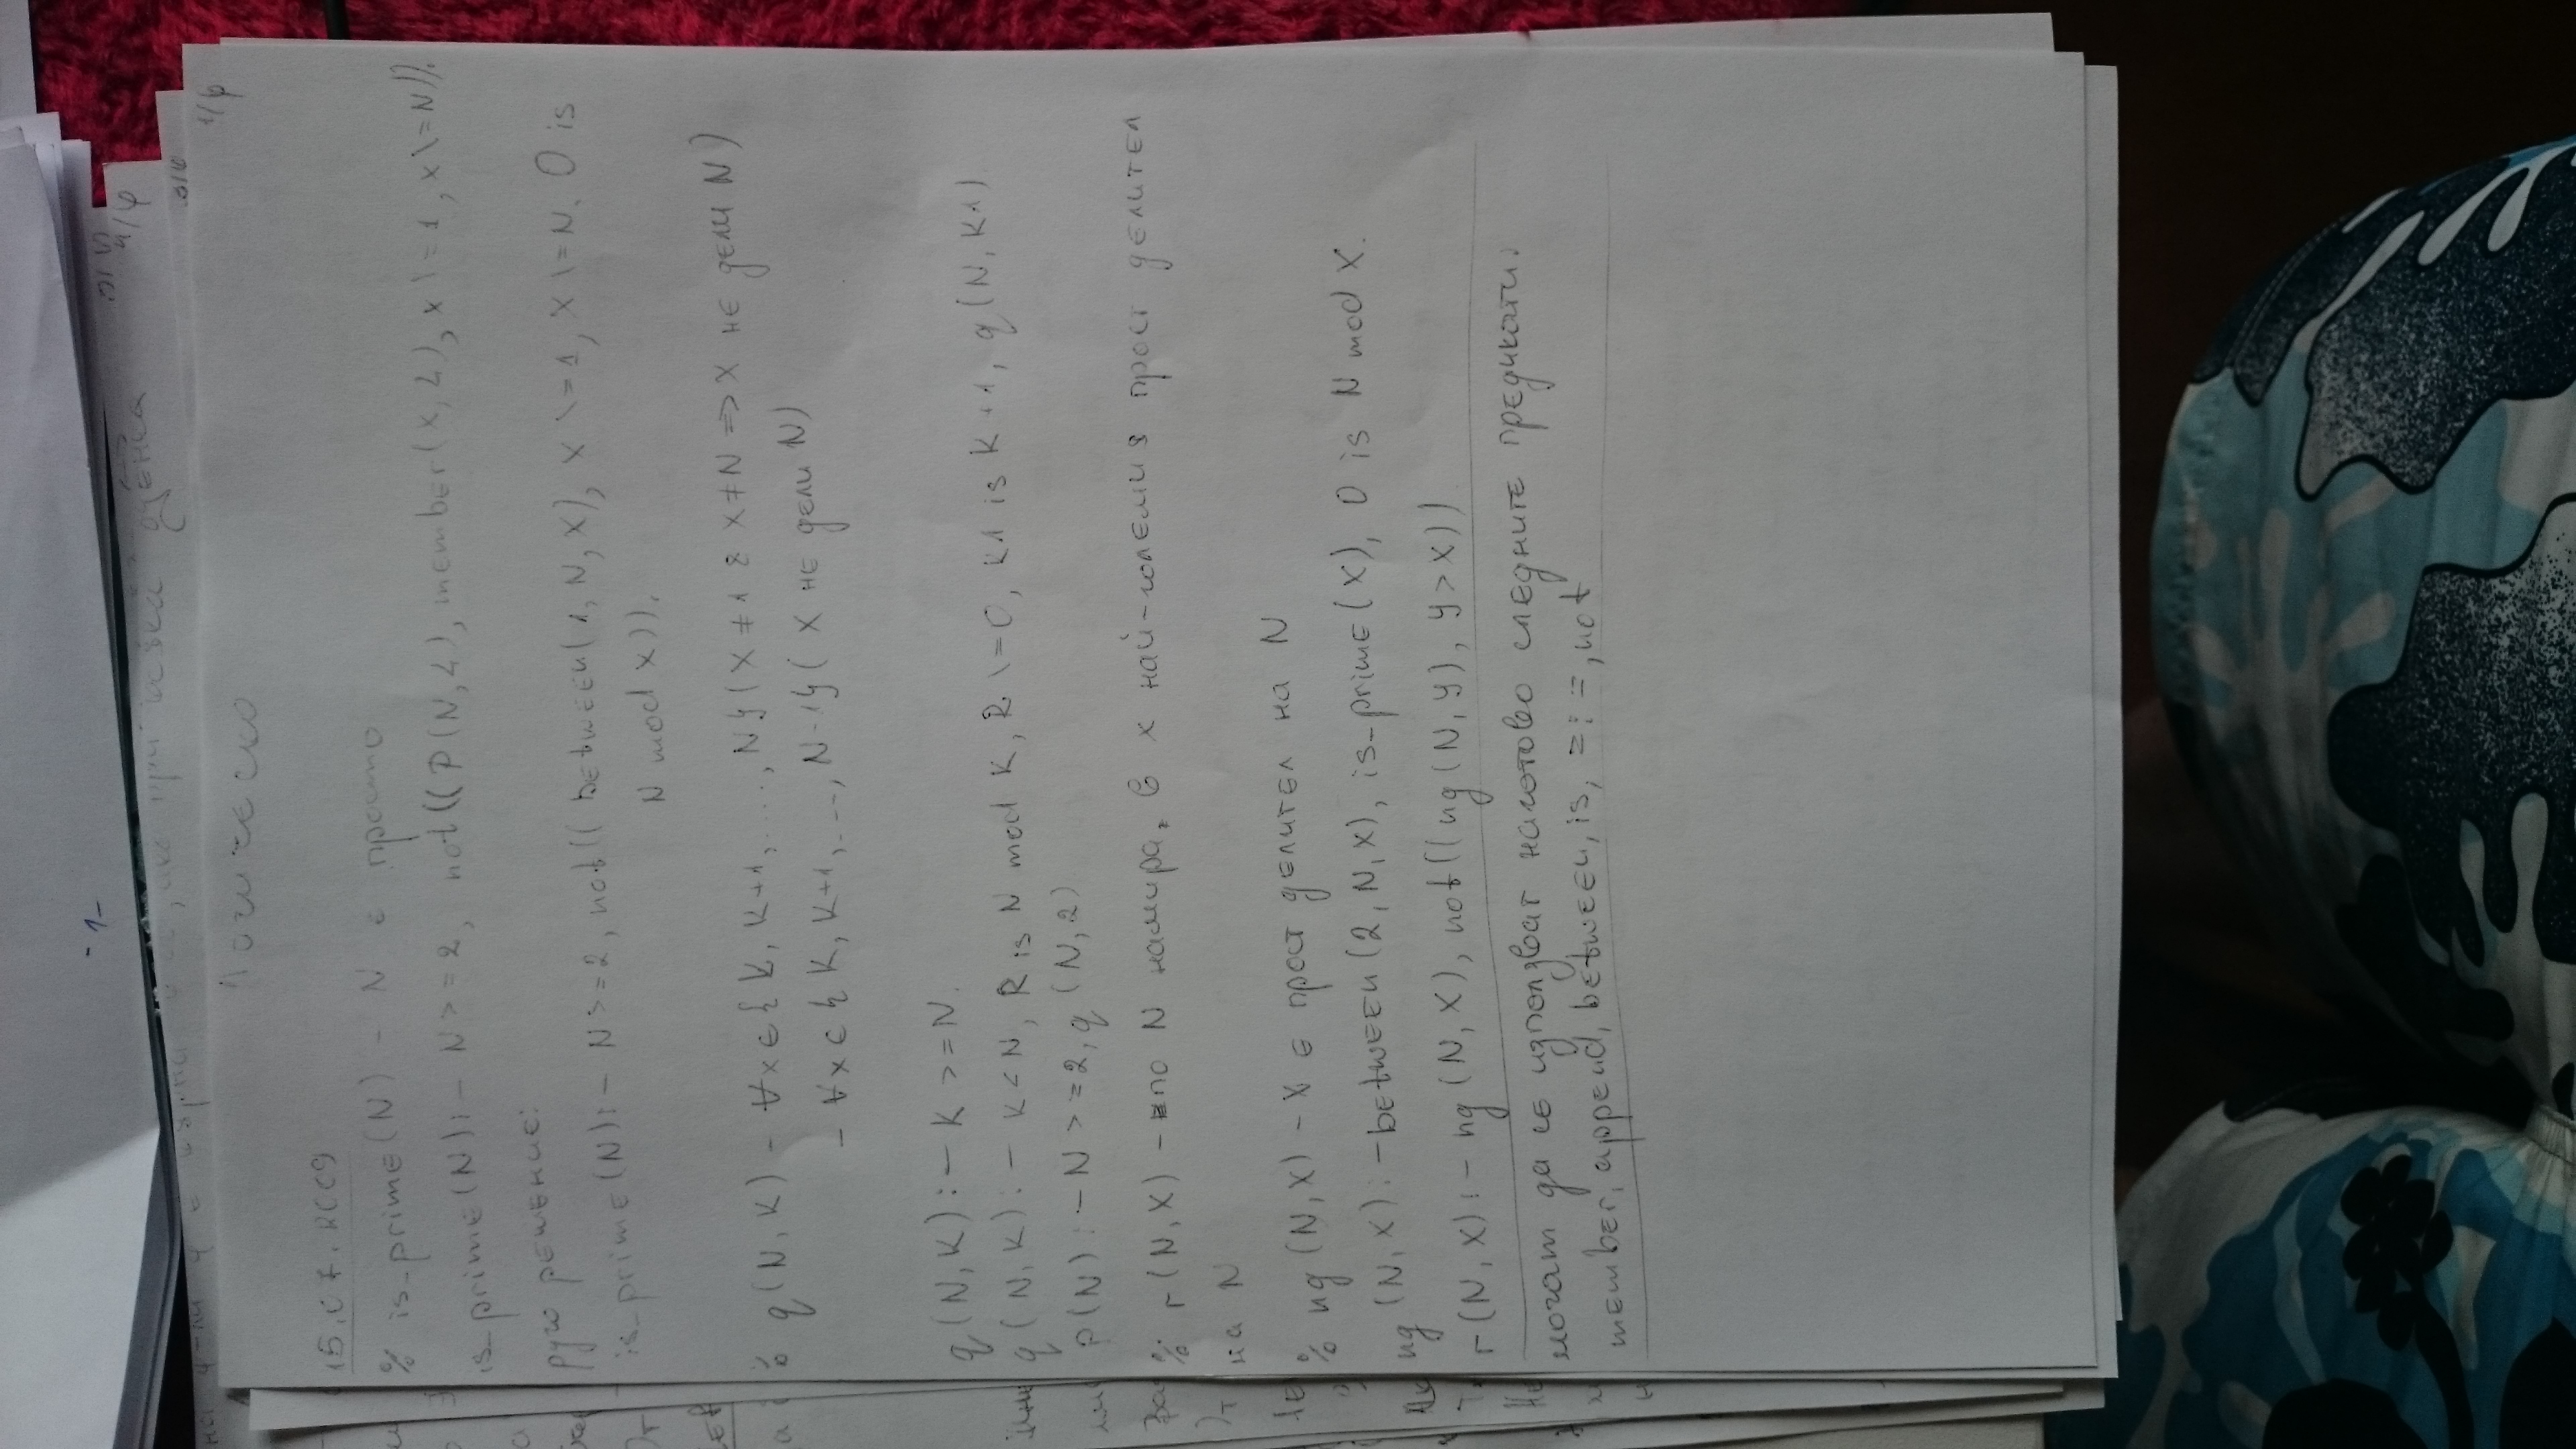 Логическо
15.07.2009
% is_prime(N) - N е просто
is_prime(N):- N>=2, not((p(N,L), member(X,L), X\=1, X\=N)).
друго решение:
is_prime(N):- N>=2, not((between(1,N,X), X\=1, X\=N, 0 is
N mod X)).
% q(N,K) - ∀x∈{K,K+1,....,N}(X≠1 & X≠N => X не дели N)
- ∀x∈{K,K+1,..,N-1}(X не дели N)
q(N,K):- K>=N.
q(N,K):- K<N, R is N mod K, R\=0, K1 is K+1, q(N,K1).
p(N):- N>=2, q(N,2)
% r(N,X) - по N намира в X най-големия прост делител
на N
% ng(N,X) - X е прост делител на N
ng(N,X):- between(2,N,X), is_prime(X), 0 is N mod X.
r(N,X):- ng(N,X), not((ng(N,Y), Y>X))
могат да се използват наготово следните предикати:
member, append, between, is, =:=, not